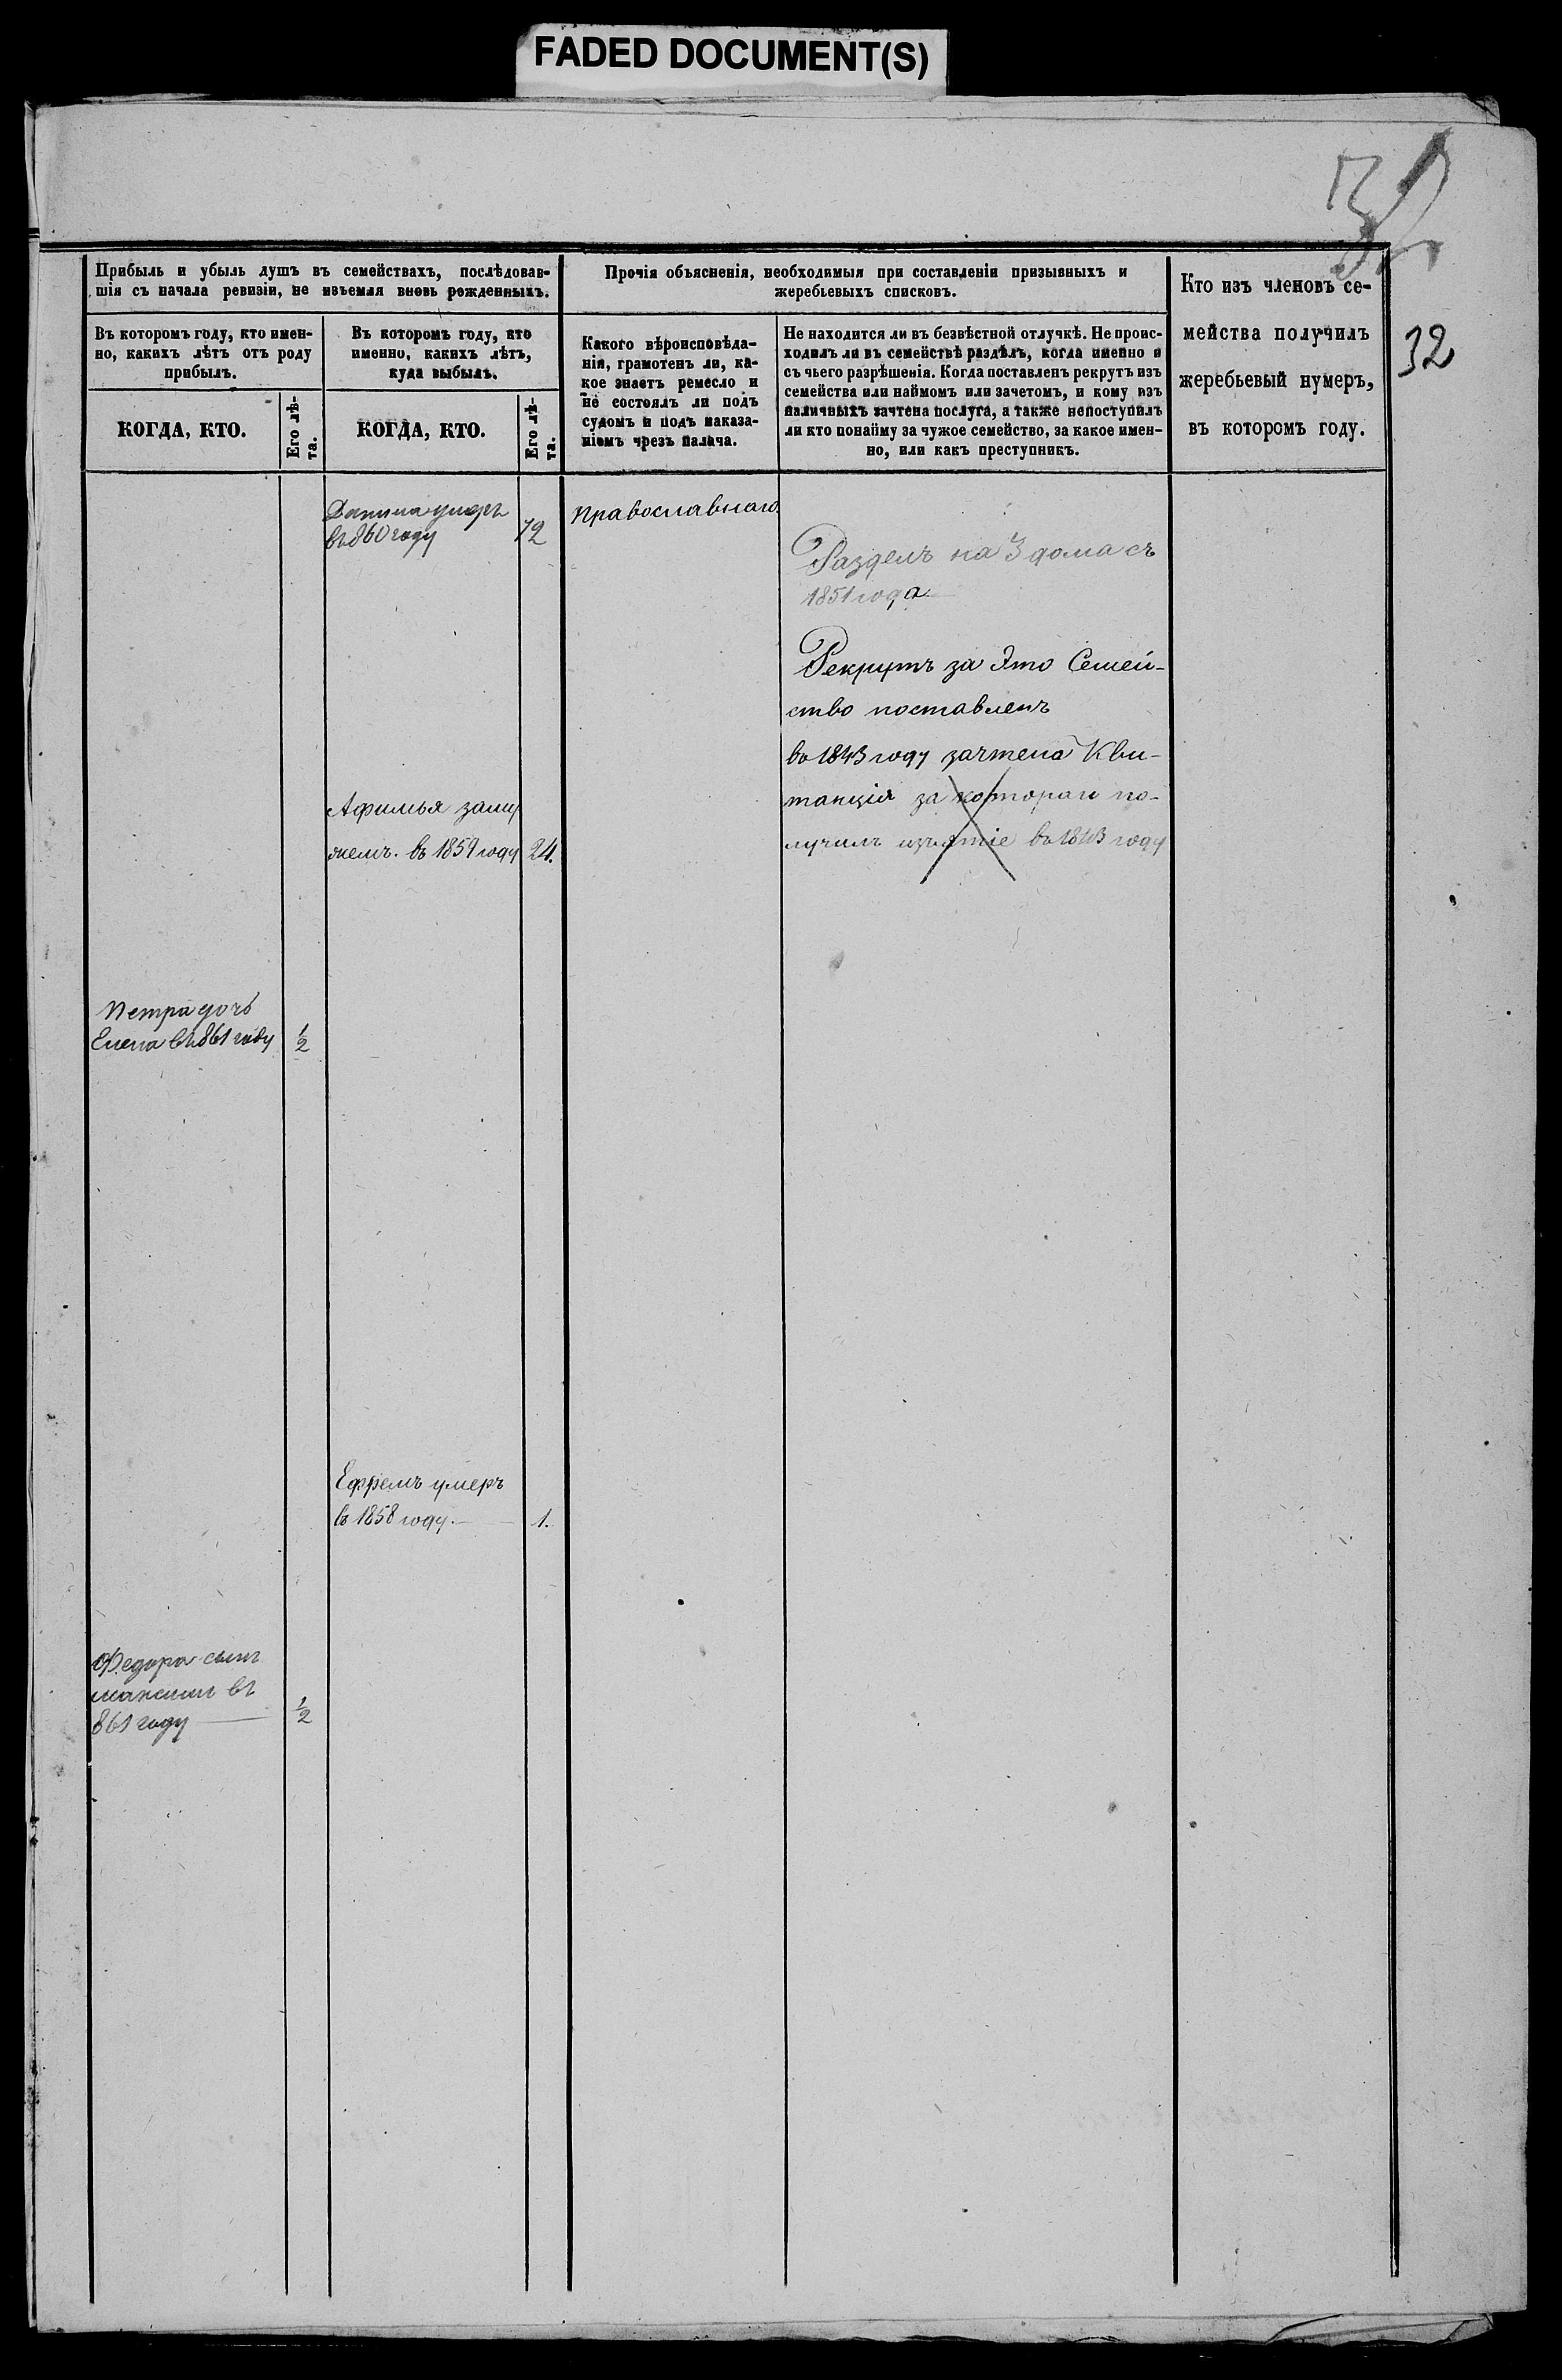 FADED DOCUMENT(S)
32
32
Прибыль и убыль душъ въ семействахъ, послѣдовав-
шія съ начала ревизіи, не изъемля вновь рожденныхъ.
Прочія объясненія, необходимыя при составленіи призывныхъ и
жеребьевыхъ списковъ.
Кто изъ членовъ се-
мейства получилъ
жеребьевый нумеръ,
въ которомъ году.
Въ которомъ году, кто имен-
но, какихъ лѣтъ отъ роду
прибылъ.
Въ которомъ году, кто
именно, какихъ лѣтъ,
куда выбылъ.
Какого вѣроисповѣда-
нія, грамотенъ ли, ка-
кое знаетъ ремесло и
не состоялъ ли подъ
судомъ и подъ наказа-
ніемъ чрезъ палача.
Не находится ли въ безвѣстной отлучкѣ. Не проис-
ходилъ ли въ семействѣ раздѣлъ, когда именно и
съ чьего разрѣшенія. Когда поставленъ рекрутъ изъ
семейства или наймомъ или зачетомъ, и кому изъ
наличныхъ зачтена послуга, а также непоступилъ
ли кто понайму за чужое семейство, за какое имен-
но, или какъ преступникъ.
КОГДА, КТО.
Его лѣ-
та.
КОГДА, КТО.
Его лѣ-
та.
Данила умеръ
въ 860 году
72
православнаго
Разделъ на 3 дома съ
1851 года.
Рекрутъ за Это Семей-
ство поставленъ
во 1843 году зачтена Кви-
танція за котораго по-
лучилъ изъятіе во 1843 году
Афимья заму
жемъ. въ 1859 году
24.
Петра дочь
Елена въ 861 году
1/2
Ефремъ умеръ
въ 1858 году.
1.
Федора сынъ
максимъ въ
861 году
1/2